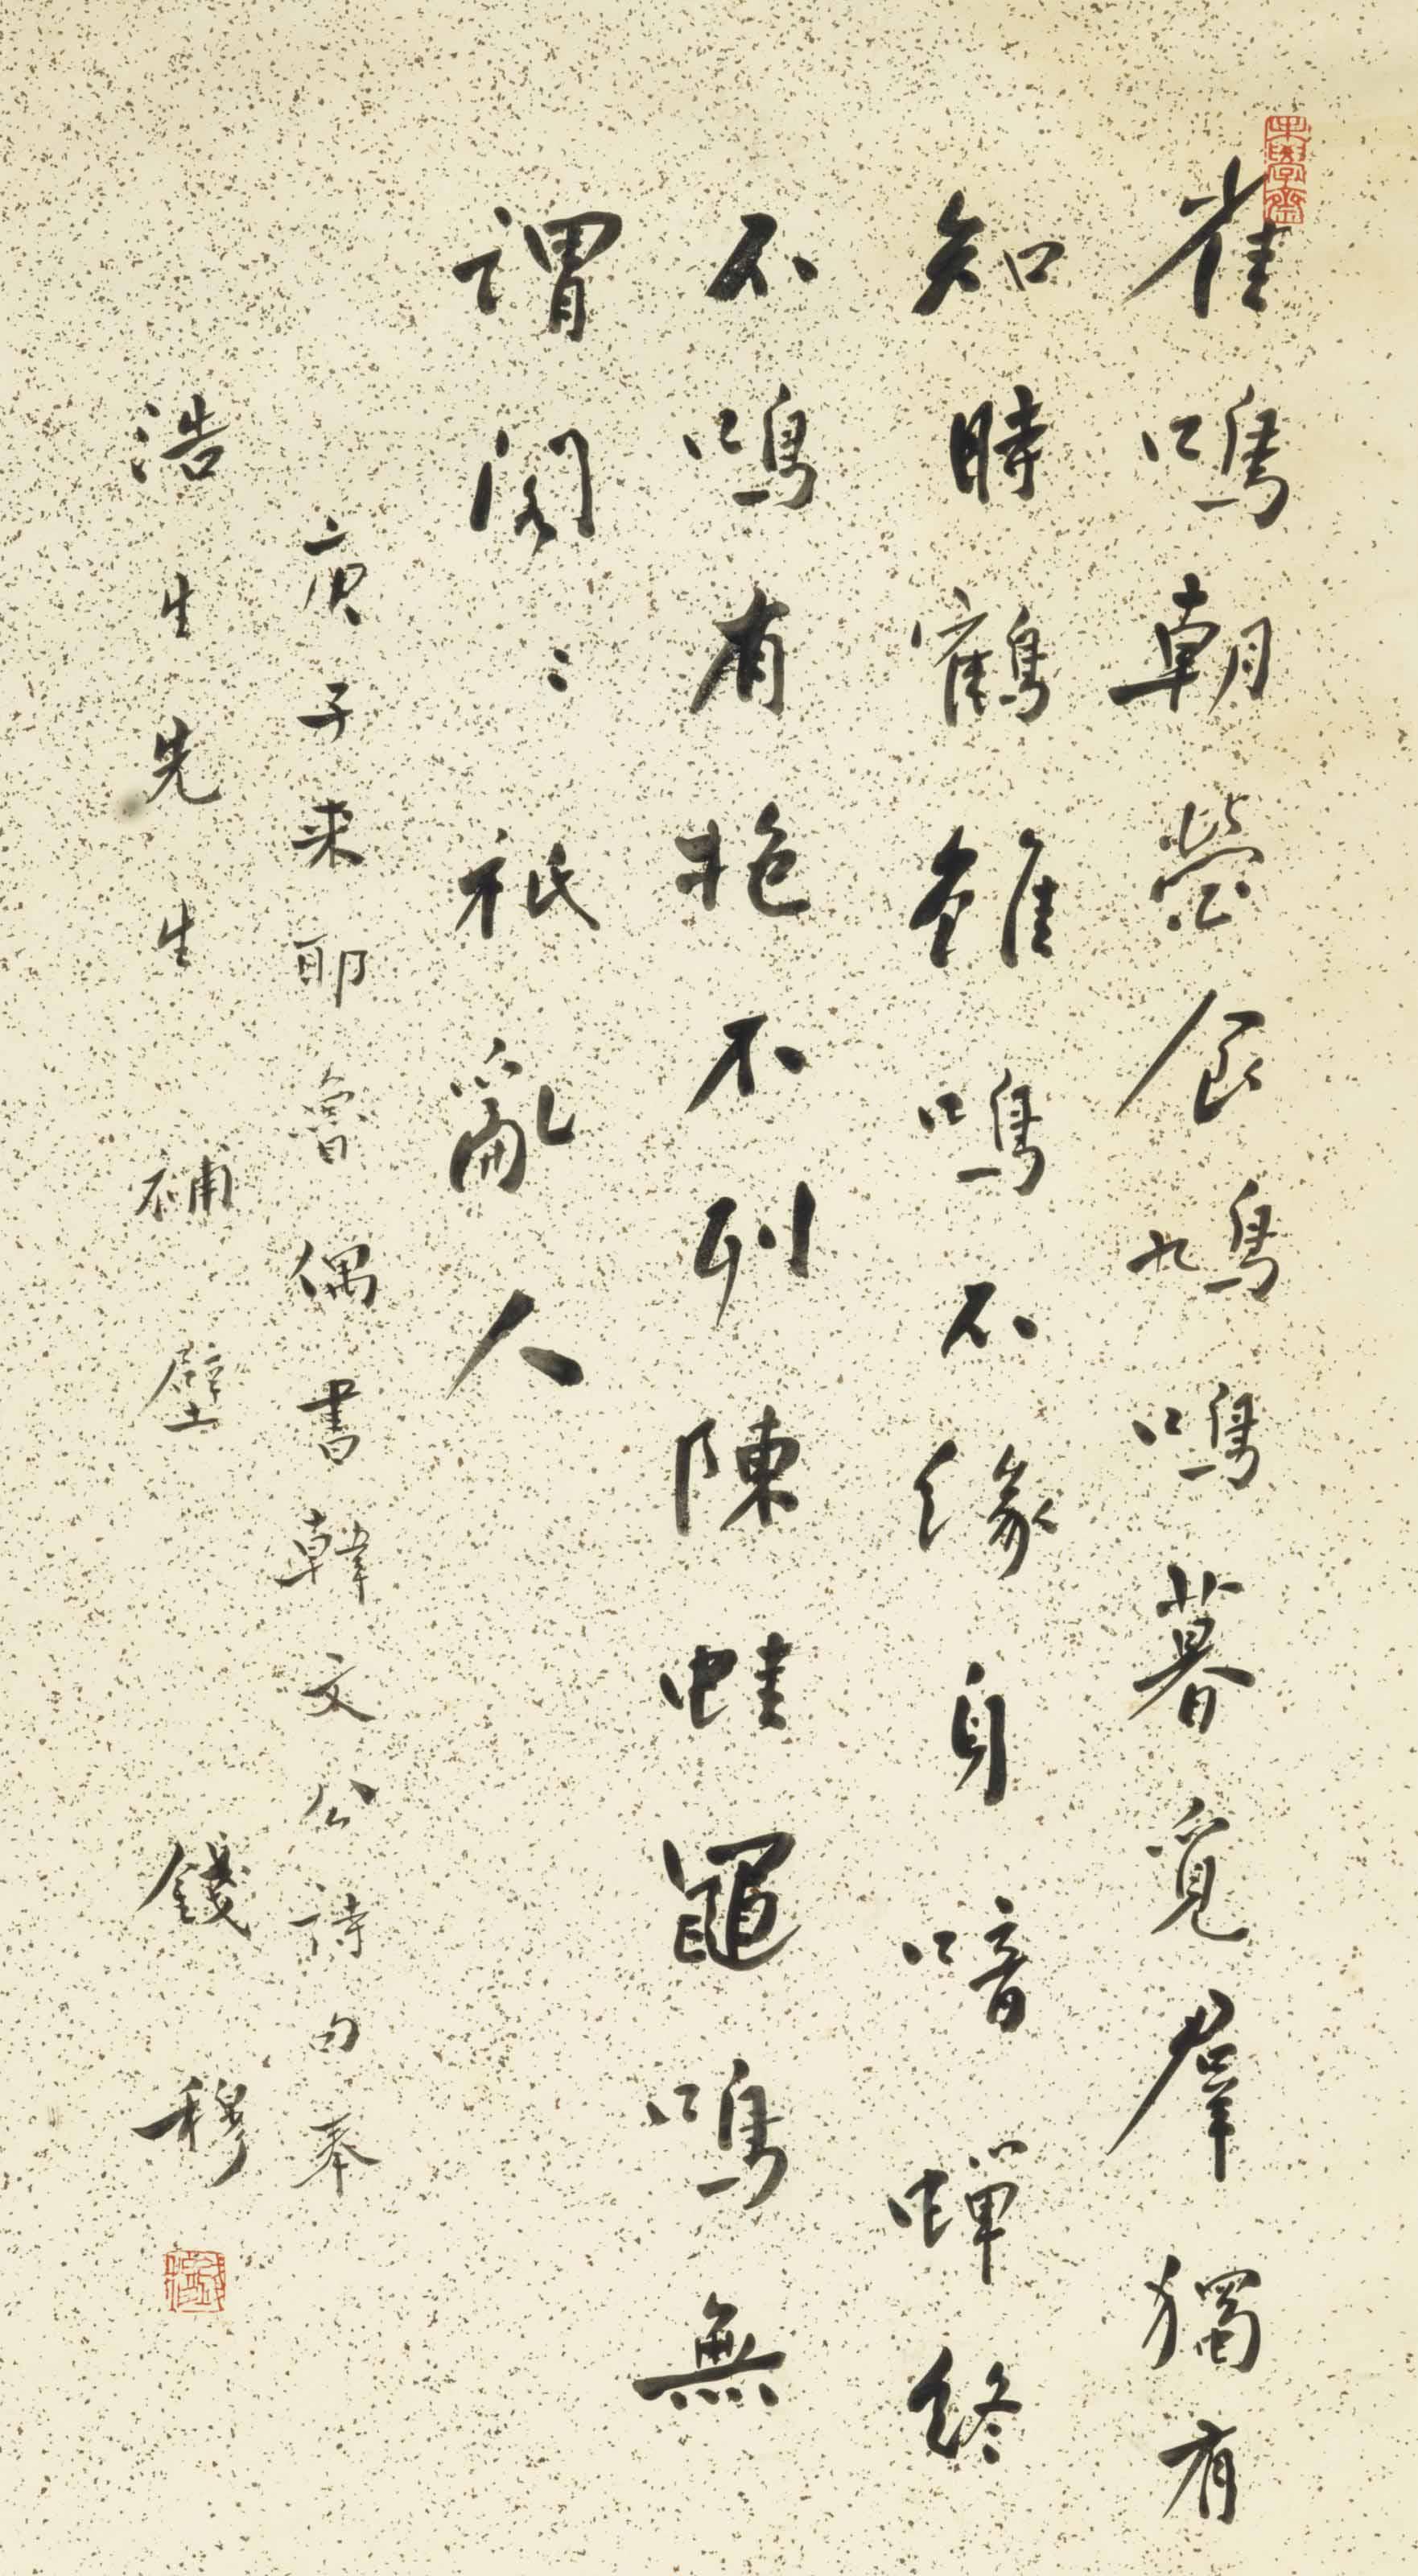 雀鳴朝營食鳩鳴暮覓羣獨有
知時鶴雖鳴不緣身喑蟬終
不鳴有抱不列陳蛙黽鳴無
謂閤〻祇亂人
庚子来耶魯偶書韓文公詩句奉
浩生先生補壁 錢穆